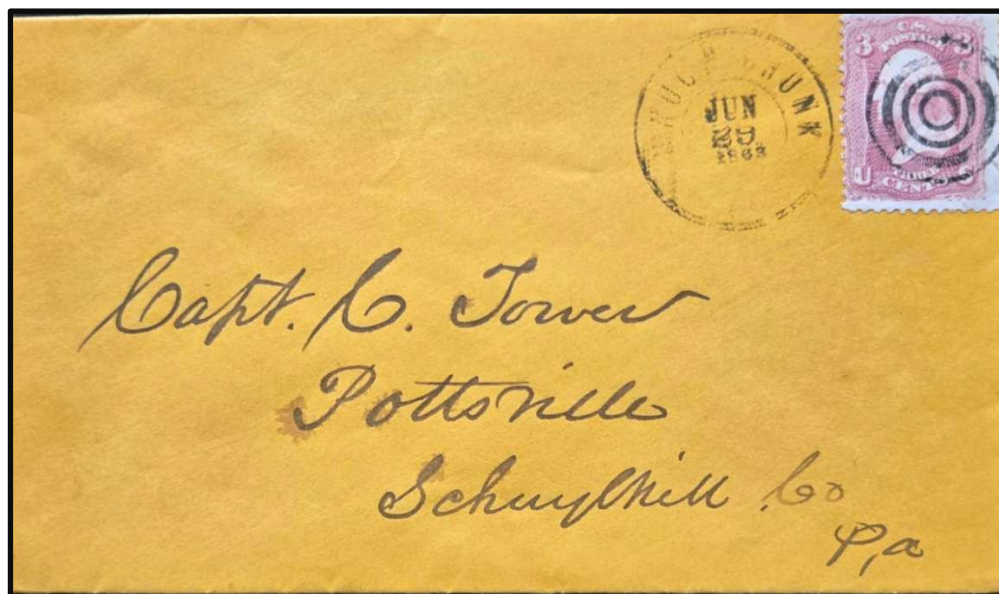 MAUCH CHUNK
JUN
29
1863
U.S.
POSTAGE
3 3
THREE
U S
CENTS
Capt. C. Tower
Pottsville
Schuylkill Co
Pa